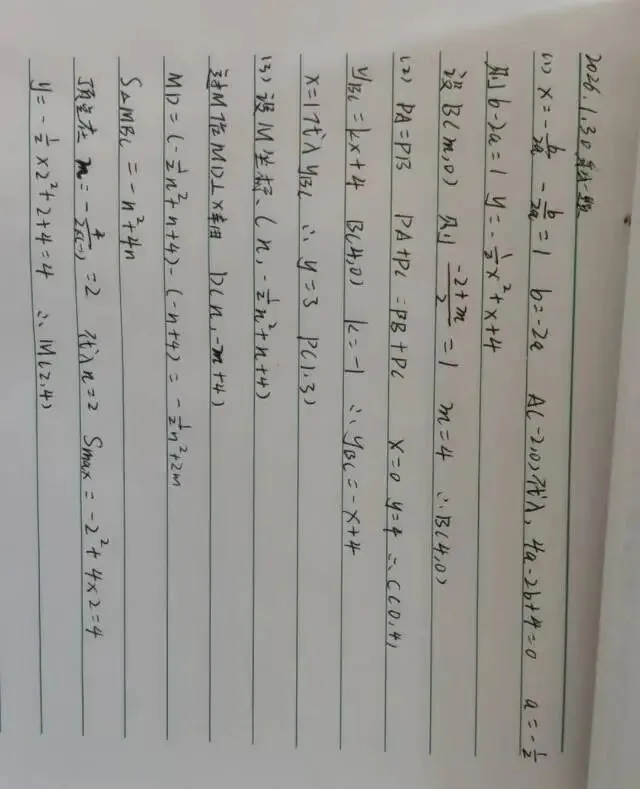 2026.1.30 每日一题
(1) x=-b/2a -b/2a=1 b=-2a A(-2,0)代入, 4a-2b+4=0 a=-1/2
则b-2a=1 y=-1/2x²+x+4
设B(m,0) 则 (-2+m)/2=1 m=4 ∴B(4,0)
(2) PA=PB PA+PC=PB+PC x=0 y=4 ∴C(0,4)
yBC=kx+4 B(4,0) k=-1 ∴yBC=-x+4
x=1代入yBC ∴y=3 P(1.3)
(3)设M坐标(n,-1/2n²+n+4)
过M作MD⊥x轴 D(n,-m+4)
MD=(-1/2n²+n+4)-(-n+4)=-1/2n²+2m
S△MBC=-n²+4n
顶点在 n=-4/2×(-1)=2 代入n=2 Smax=-2²+4×2=4
y=-1/2×2²+2+4=4 ∴M(2.4)